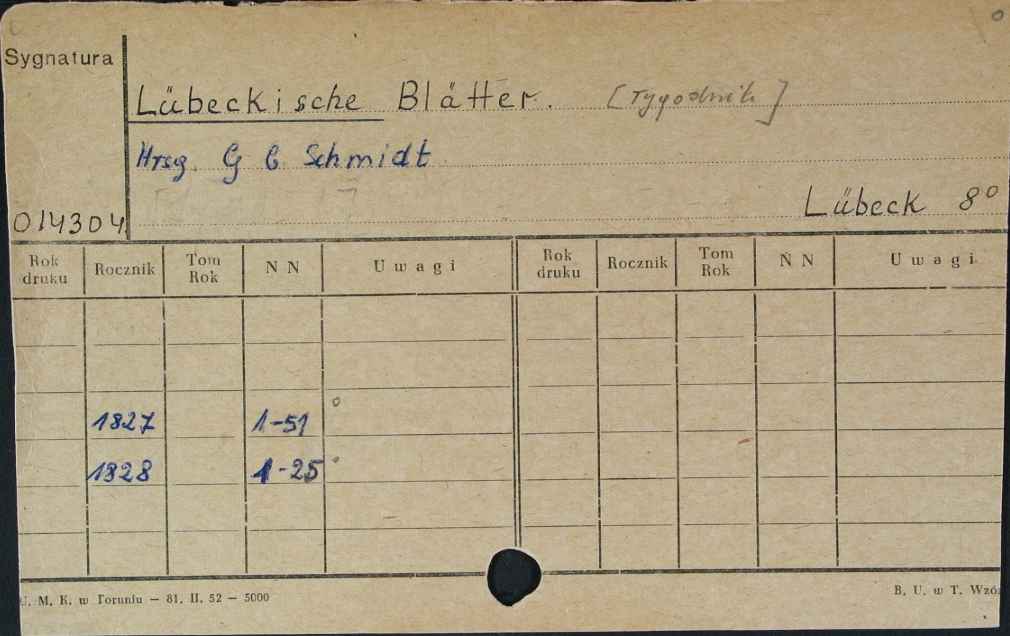 Sygnatura
Lübeckische Blätter. [Tygodnik]
Hrsg. G C. Schmidt
Lübeck 8°
014304
Rok druku Rocznik Tom Rok N N Uwagi Rok druku Rocznik Tom Rok N N Uwagi
1827 1-51
1828 1-25
U. M. K. w Toruniu — 81. II. 52 — 5000
B. U. w T. Wzór